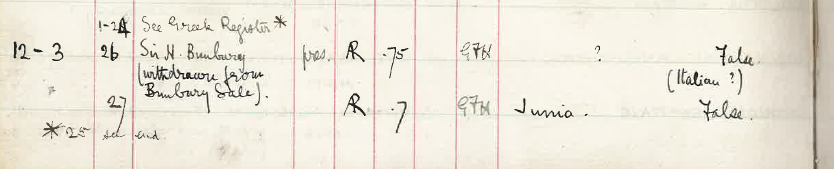 1-24 See Greek Register *
12-3 26 Sir H. Bunbury pres. AR .75 GFH ? False.
(withdrawn from (Italian ?)
Bunbury Sale).
27 AR .7 GFH Junia. False.
* 25 see end.